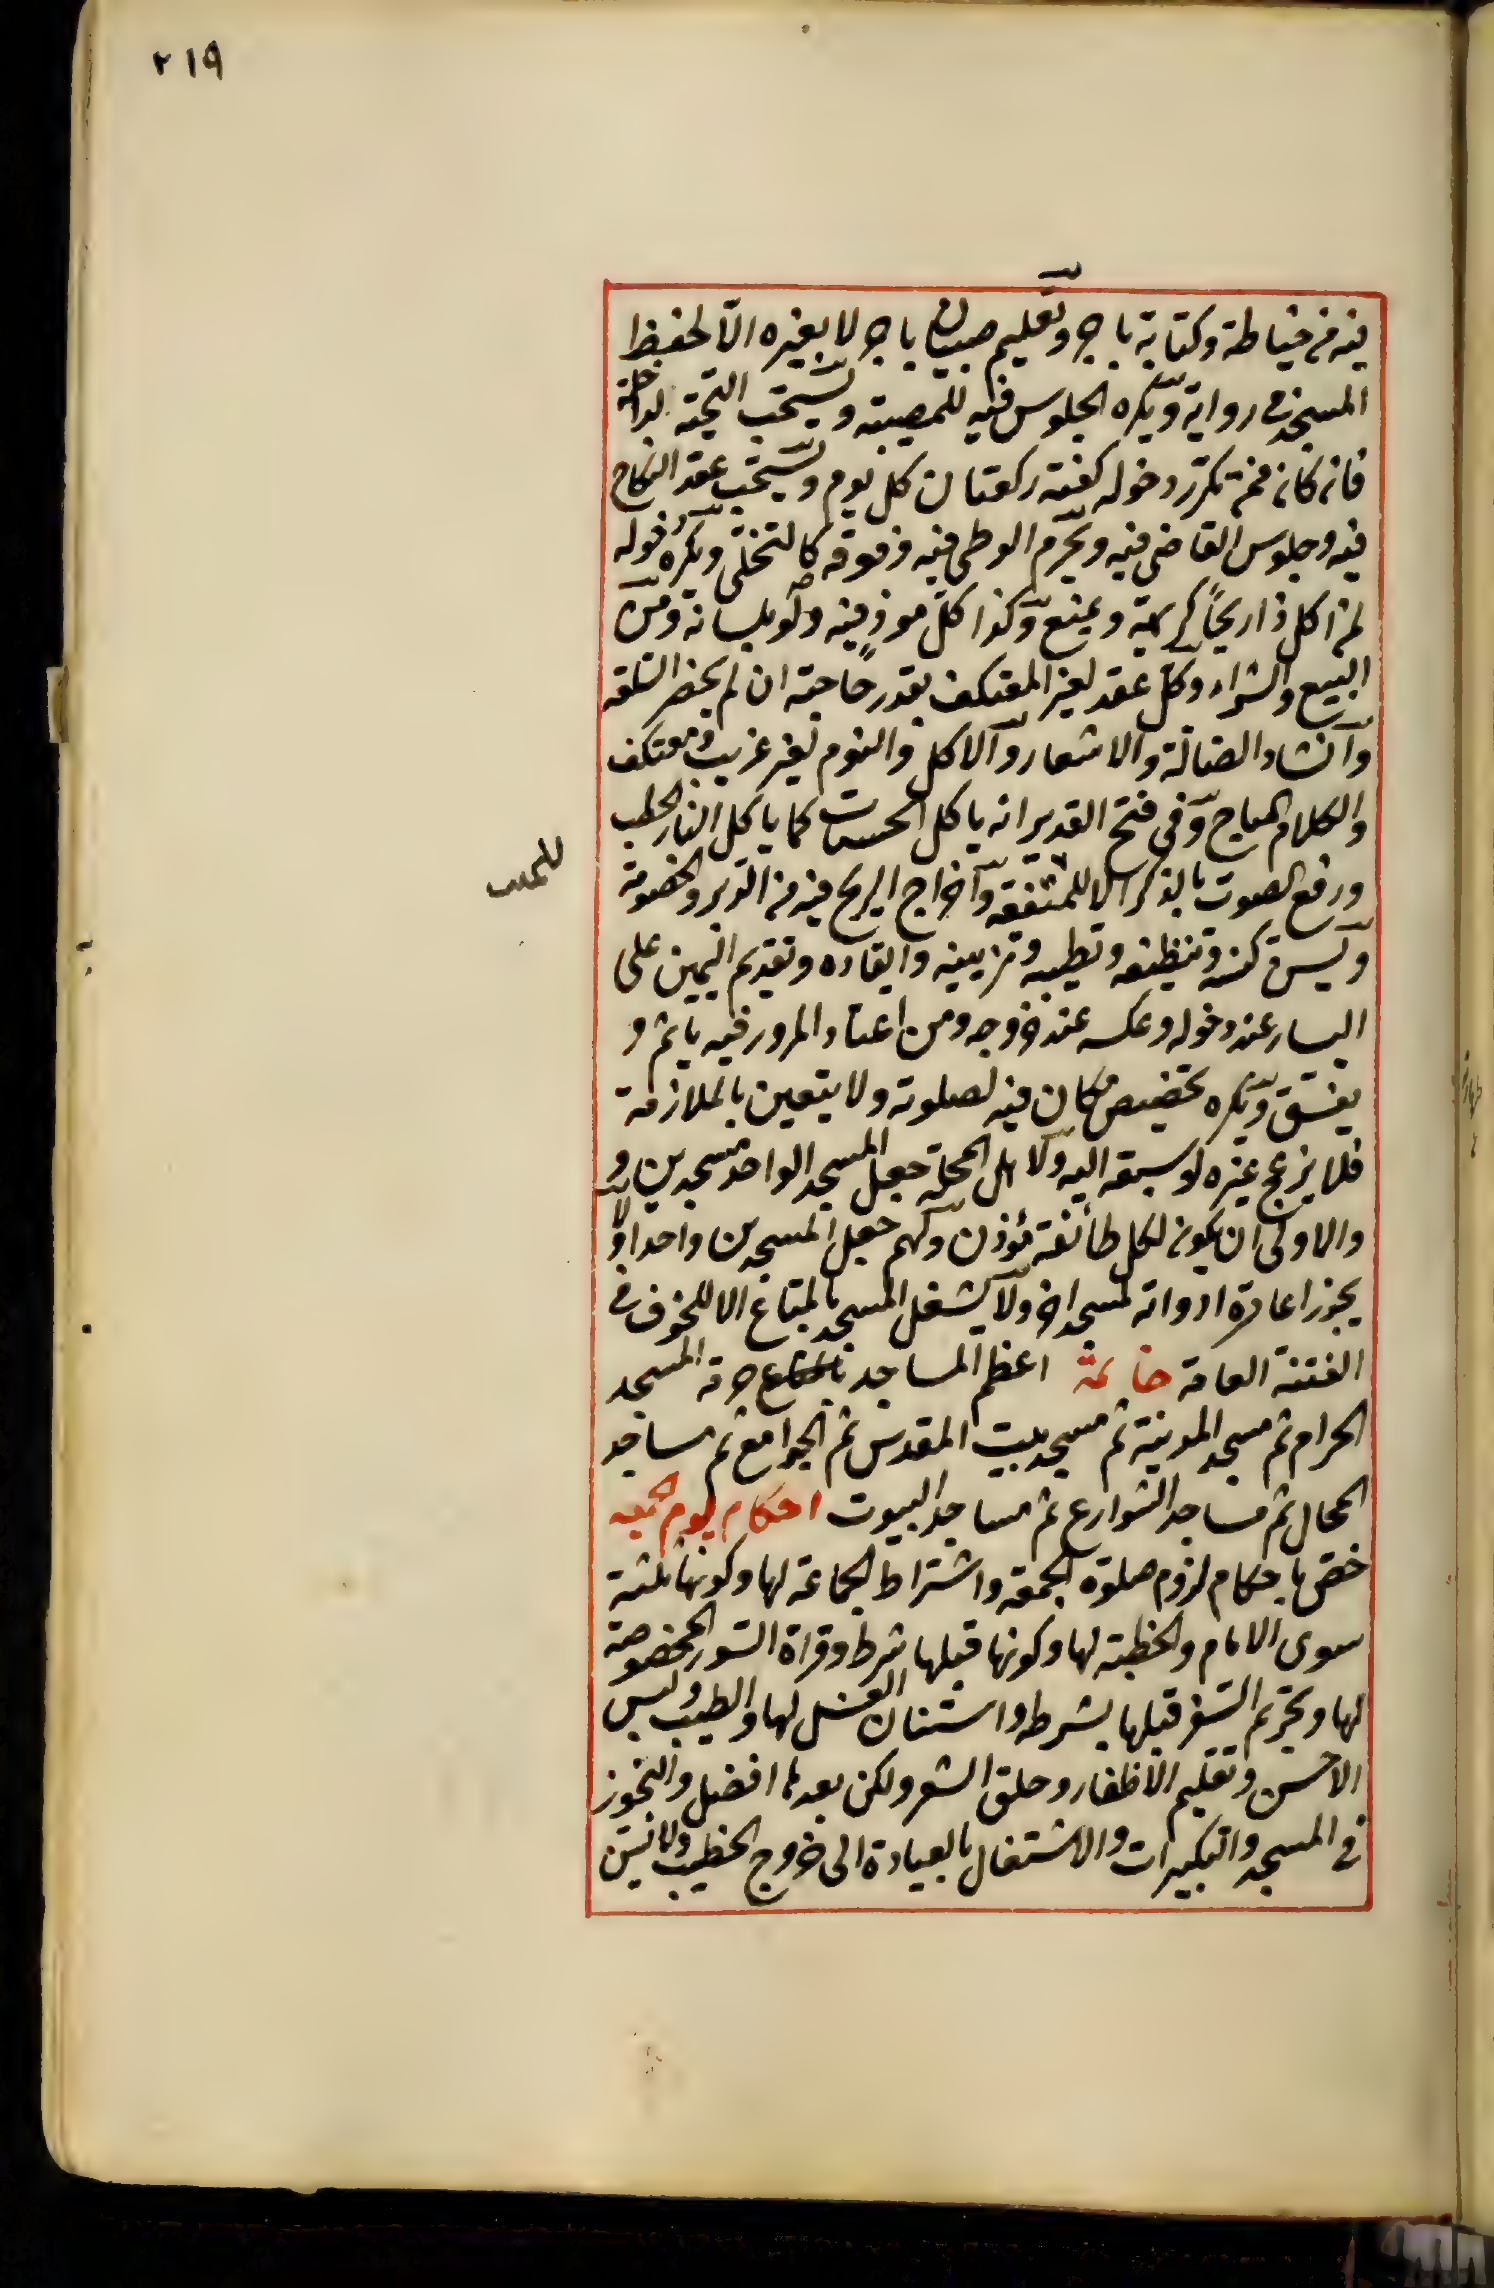 ٢١٩
فيه من خياطة وكتابة باجر وتعليم صبيان باجر لا بغيره الا لحفظ
المسجد في رواية ويكره الجلوس فيه للمصيبة ويستحب التحية لداخله
فان كان ممن تكرر دخوله كفته ركعتان كل يوم ويستحب عقد النكاح
فيه وجلوس القاضي فيه ويحرم الوطى فيه وفوقه كالتخلي ويكره دخوله
لمن اكل ذا ريح كريهة ويمنع وكذا كل موذ فيه ولو بلسانه ومن
البيع والشراء وكل عقد لغير المعتكف بقدر حاجته ان لم يحضر السلعة
وانشاد الضالة والاشعار والاكل والنوم لغير غريب ومعتكف
والكلام المباح وفي فتح القدير انه ياكل الحسنات كما ياكل النار الحطب
ورفع الصوت بالذكر الا للمتفقه واخراج الريح فيه من الدبر والخصومة
ويسن كنسه وتنظيفه وتطييبه وتزيينه وايقاده وتقديم اليمين على
اليسار عند دخوله وعكسه عند خروجه ومن اعتاد المرور فيه ياثم و
يفسق ويكره تخصيص مكان فيه لصلوته ولا يتعين بالملازمة
فلا يزعج غيره لو سبقه اليه ولاهل المحلة جعل المسجد الواحد مسجدين و
والاولى ان يكون لكل طائفة مؤذن ولهم جعل المسجدين واحدا ولا
يجوز اعارة ادواته لمسجد اخر ولا يشغل المسجد بالمتاع الا للخوف في
الفتنة العامة خاتمة اعظم المساجد حرمة المسجد
الحرام ثم مسجد المدينة ثم مسجد بيت المقدس ثم الجوامع ثم مساجد
المحال ثم مساجد الشوارع ثم مساجد البيوت احكام يوم الجمعه
خص باحكام لزوم صلوة الجمعة واشتراط الجماعة لها وكونها ثلثة
سوى الامام والخطبة لها وكونها قبلها شرط وقراة السور المخصوصة
لها وتحريم السفر قبلها بشرطه واستنان الغسل لها والطيب ولبس
الاحسن وتقليم الاظفار وحلق الشعر ولكن بعدها افضل والبخور
في المسجد والتكبيرات والاشتغال بالعبادة الى خروج الخطيب ولا يسن